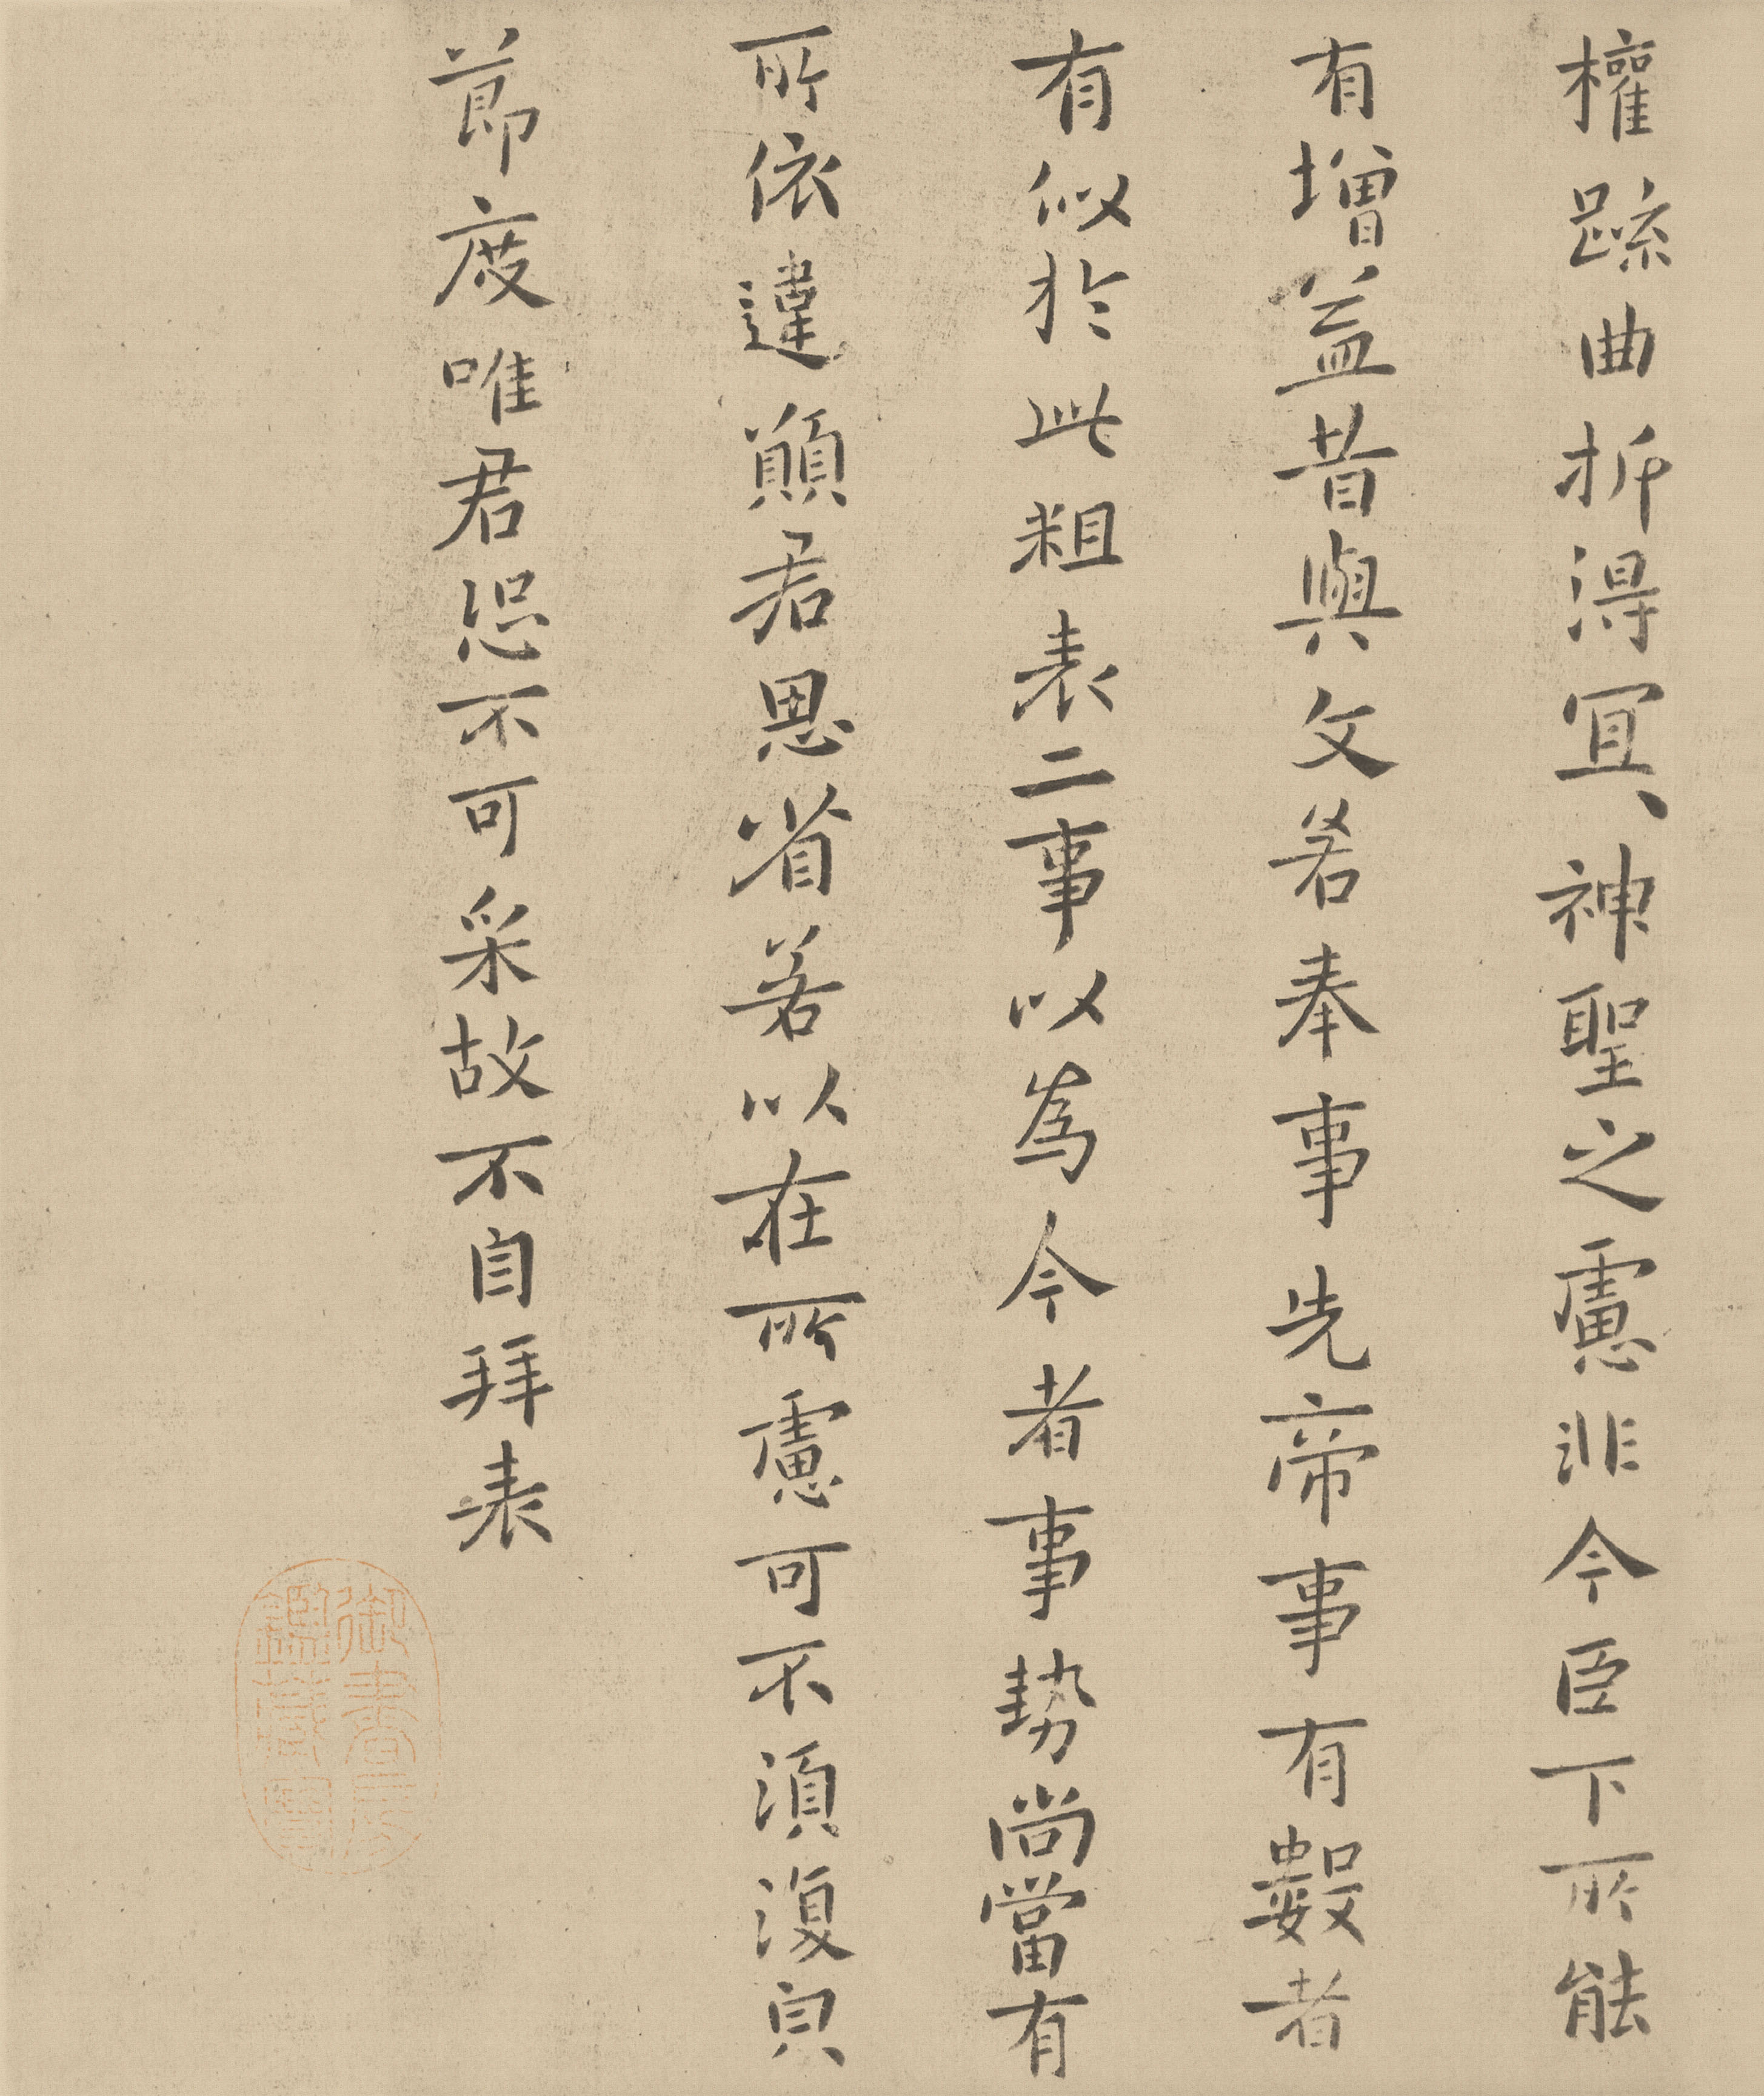 權踈曲折得冝神聖之慮非今臣下所能
有增益昔與文若奉事先帝事有數者
有似於此粗表二事以為今者事勢尚當有
所依違願君思省若以在所慮可不須復皃
莭度唯君恐不可采故不自拜表
御書房鑑藏寶